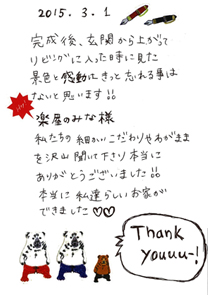 2015.3.1
完成後、玄関から上がって
リビングに入った時に見た
景色と感動はきっと忘れる事は
ないと思います!!
楽屋のみな様
私たちの細かいこだわりやわがまま
を沢山聞いて下さり本当に
ありがとうございました!!
本当に私達らしいお家が
できました♡♡
Thank
youuu~!